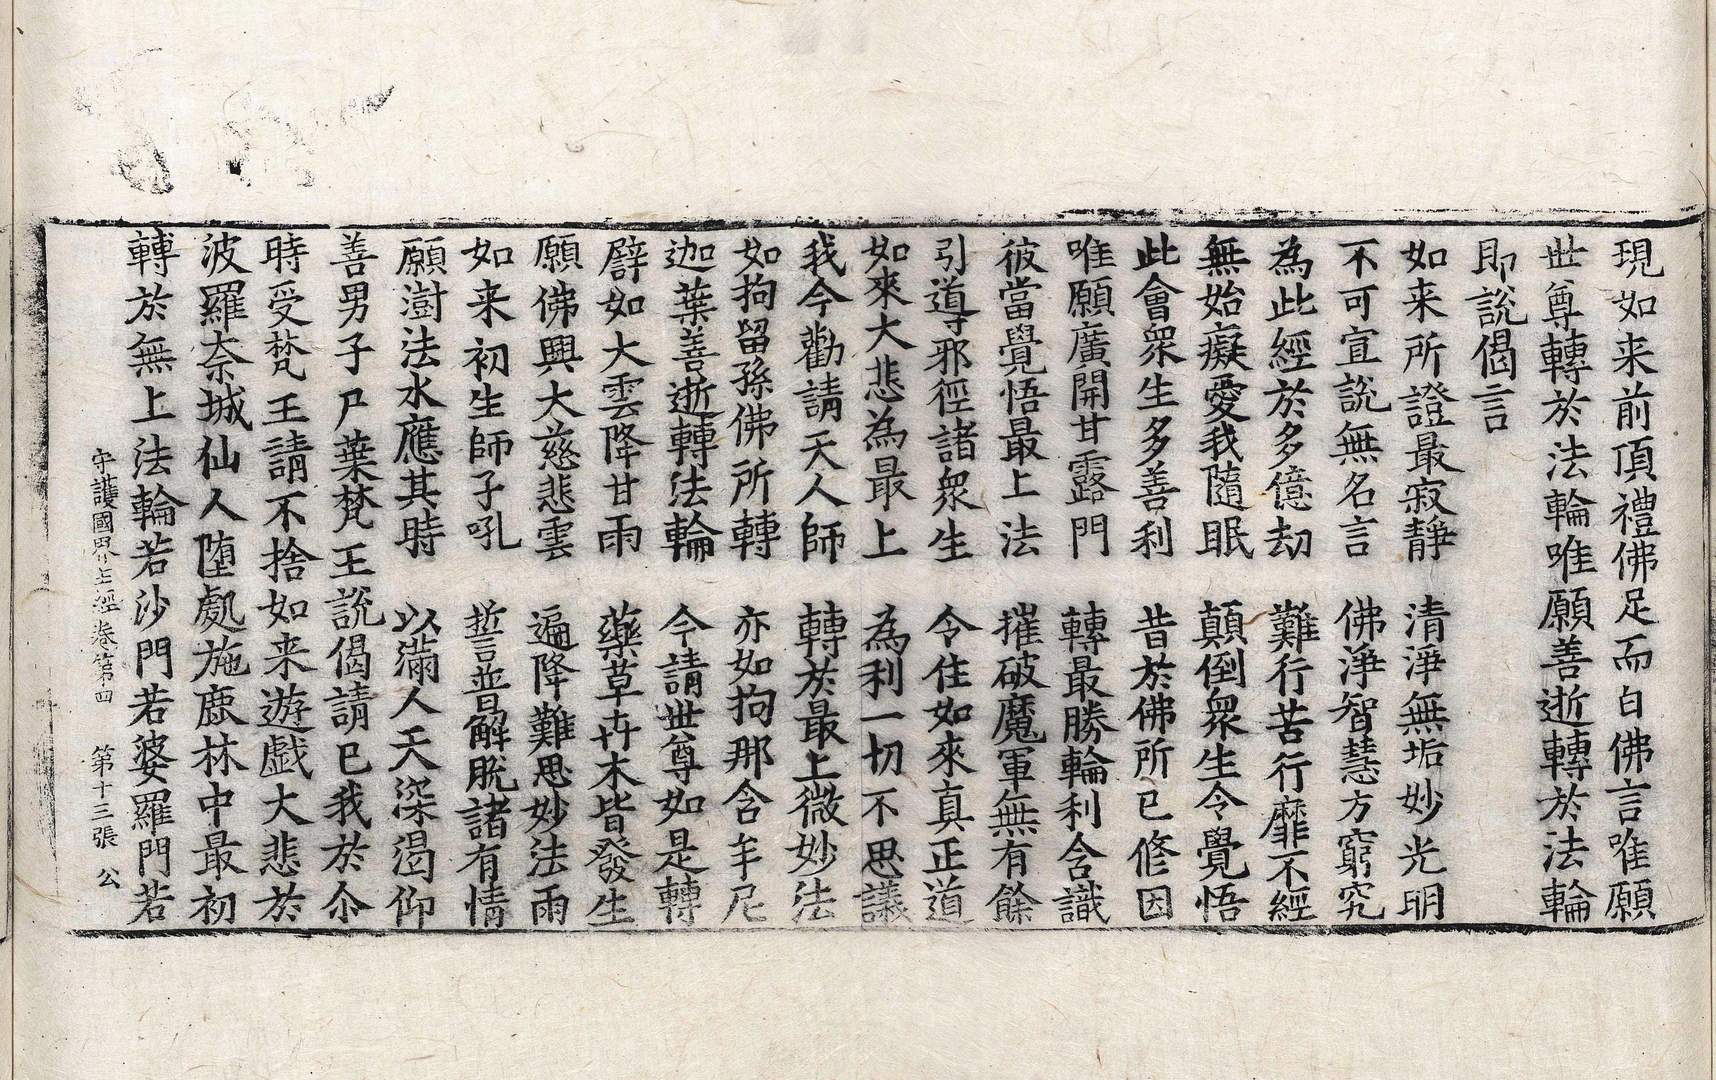 現如来前頂禮佛足而白佛言唯願
世尊轉於法輪唯願善逝轉於法輪
即說偈言
如来所證最寂靜　清淨無垢妙光明
不可宣說無名言　佛淨智慧方窮究
為此經於多億劫　難行苦行靡不經
無始癡愛我隨眠　顛倒衆生令覺悟
此會衆生多善利　昔於佛所已修因
唯願廣開甘露門　轉最勝輪利含識
彼當覺悟最上法　摧破魔軍無有餘
引導邪徑諸衆生　令住如來真正道
如來大悲為最上　為利一切不思議
我今勸請天人師　轉於最上微妙法
如拘留孫佛所轉　亦如拘那含牟尼
迦葉善逝轉法輪　今請世尊如是轉
譬如大雲降甘雨　藥草卉木皆發生
願佛興大慈悲雲　遍降難思妙法雨
如来初生師子吼　誓普解脫諸有情
願澍法水應其時　以滿人天深渴仰
善男子尸葉梵王說偈請已我於尒
時受梵王請不捨如来遊戲大悲於
波羅奈城仙人墮處施鹿林中最初
轉於無上法輪若沙門若婆羅門若
守護國界主經卷第四　第十三張　公